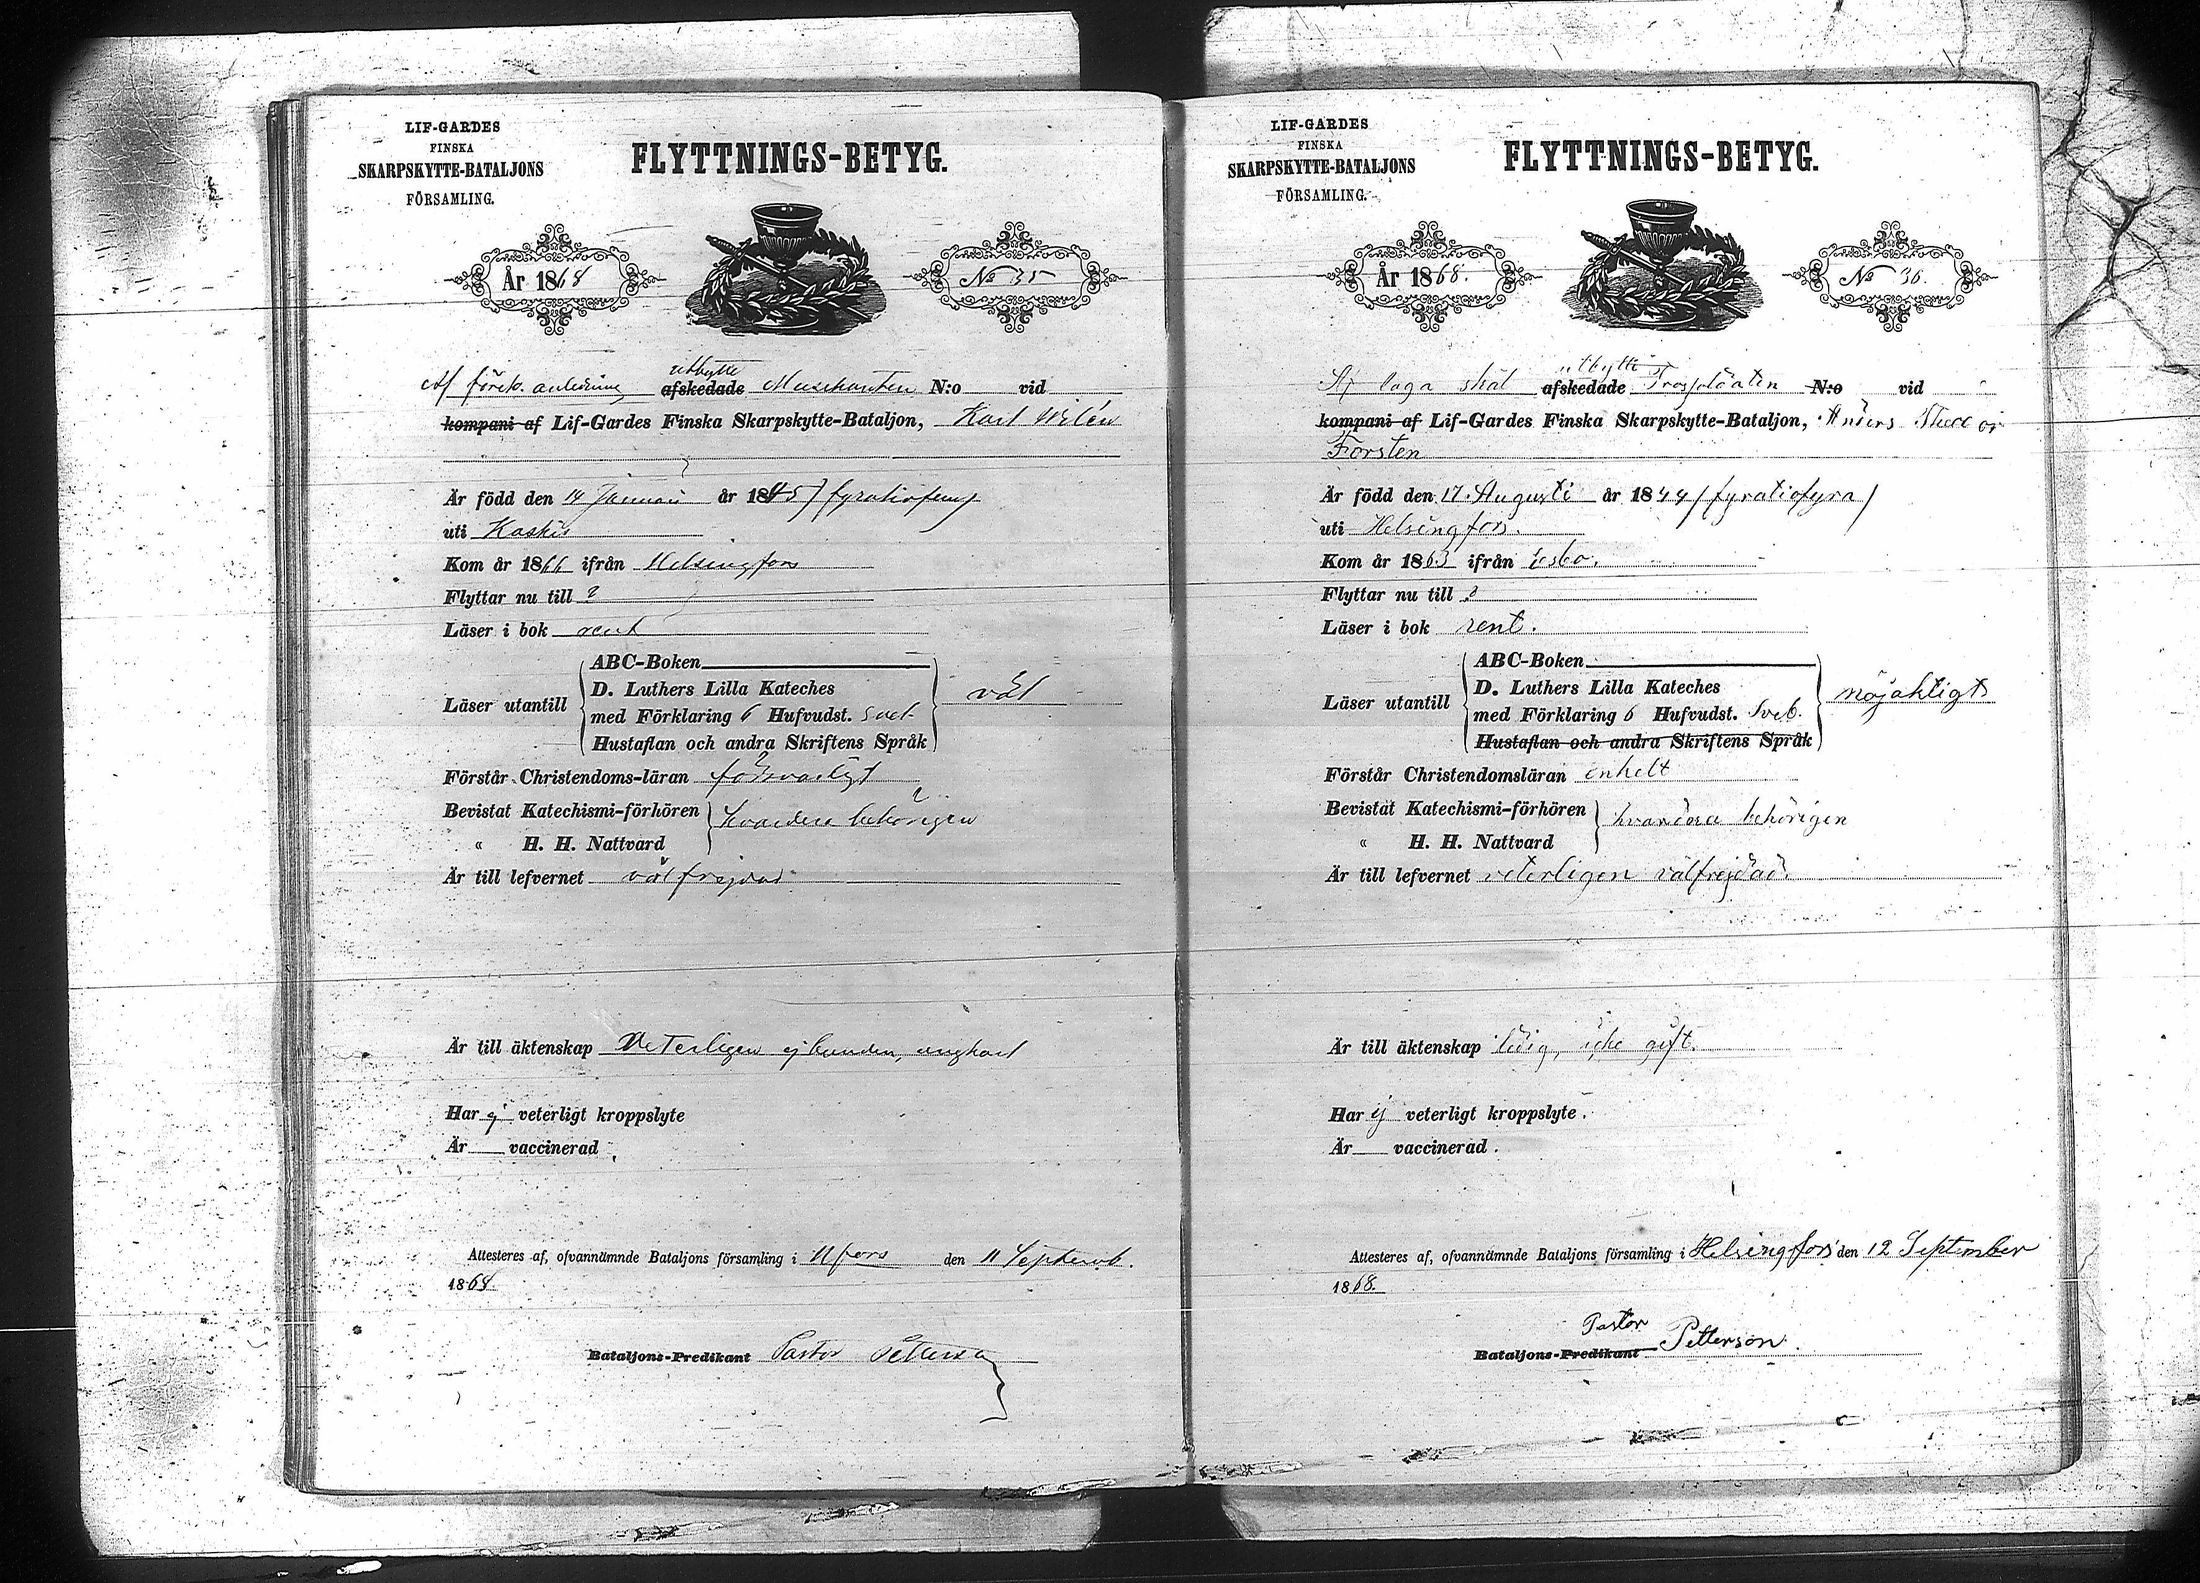 LIF-GARDES
FINSKA
SKARPSKYTTE-BATALJONS
FÖRSAMLING.
FLYTTNINGS-BETYG.
År 1868
No 35
utbytte
Af förek. anledning afskedade Musikanten N:o vid
kompani af Lif-Gardes Finska Skarpskytte-Bataljon, Karl Wilén
Är född den 14 Januari år 1845 / fyratiofem /
uti Kaskö
Kom år 1866 ifrån Helsingfors
Flyttar nu till ?
Läser i bok rent
Läser utantill
ABC-Boken
D. Luthers Lilla Kateches
med Förklaring 6 Hufvudst. Sveb.
Hustaflan och andra Skriftens Språk
väl
Förstår Christendoms-läran försvarligt
Bevistat Katechismi-förhören
« H. H. Nattvard
hvardera behörigen
Är till lefvernet välfrejdad
Är till äktenskap Veterligen ej bunden,
Har ej veterligt kroppslyte
Är vaccinerad
Attesteres af, ofvannämnde Bataljons församling i Hfors den 11 Septemb.
1868
Bataljons-Predikant Pastor Petterson
LIF-GARDES
FINSKA
SKARPSKYTTE-BATALJONS
FÖRSAMLING.
FLYTTNINGS-BETYG.
År 1868.
No 36.
utbytte
Af laga skäl afskedade Trossoldaten N:o vid
kompani af Lif-Gardes Finska Skarpskytte-Bataljon, Anders
Forsten
Är född den 17. Augusti år 1844 / fyratiofyra /
uti Helsingfors.
Kom år 1863 ifrån Esbo.
Flyttar nu till ?
Läser i bok rent.
Läser utantill
ABC-Boken
D. Luthers Lilla Kateches
med Förklaring 6 Hufvudst. Sveb.
Hustaflan och andra Skriftens Språk
nöjaktigt
Förstår Christendomsläran enkelt
Bevistat Katechismi-förhören
« H. H. Nattvard
hvardera behörigen
Är till lefvernet veterligen välfrejdad.
Är till äktenskap ledig, icke gift.
Har ej veterligt kroppslyte.
Är vaccinerad.
Attesteres af, ofvannämnde Bataljons församling i Helsingfors den 12 September
1868.
Pastor
Bataljons-Predikant Petterson.